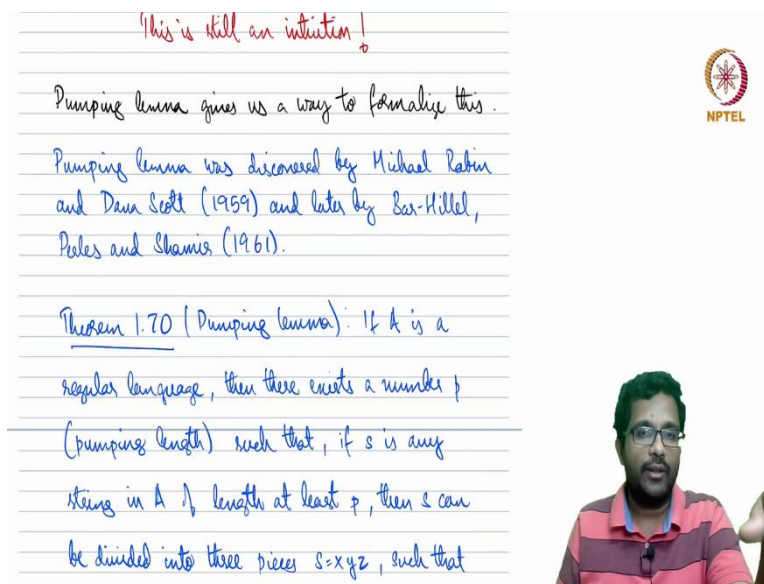 This is still an intuition!
Pumping lemma gives us a way to formalize this.
NPTEL
Pumping lemma was discovered by Michael Rabin
and Dana Scott (1959) and later by Bar-Hillel,
Perles and Shamir (1961).
Theorem 1.70 (Pumping lemma): If A is a
regular language, then there exists a number p
(pumping length) such that, if s is any
string in A of length at least p, then s can
be divided into three pieces s=xyz, such that